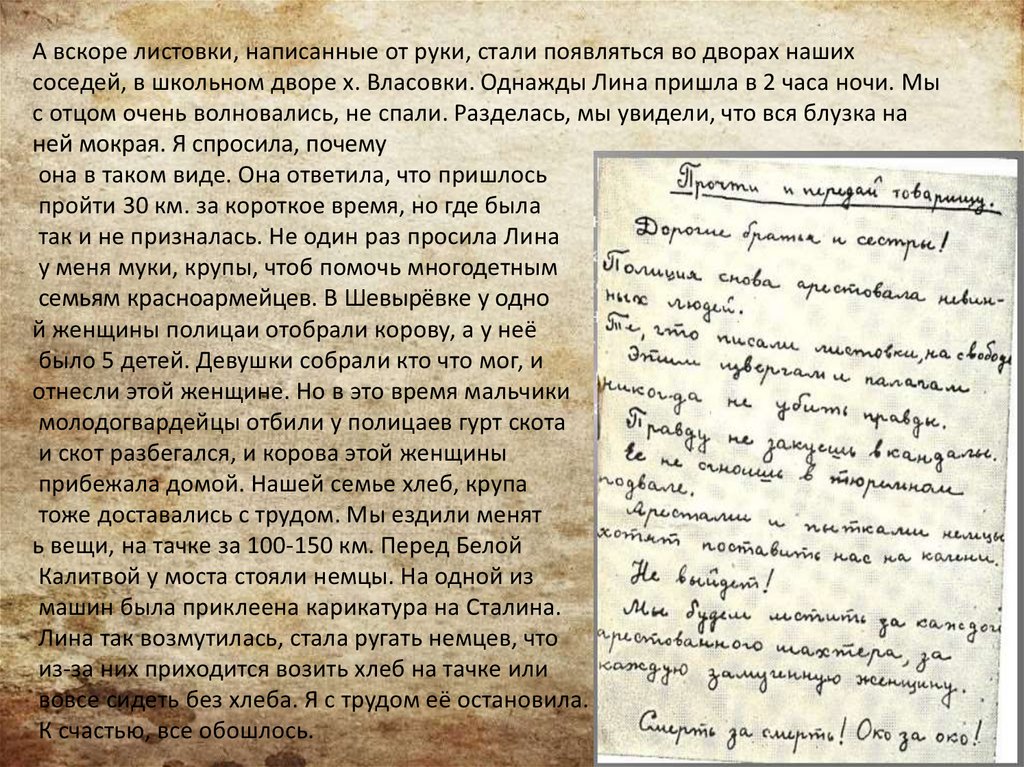 А вскоре листовки, написанные от руки, стали появляться во дворах наших
соседей, в школьном дворе х. Власовки. Однажды Лина пришла в 2 часа ночи. Мы
с отцом очень волновались, не спали. Разделась, мы увидели, что вся блузка на
ней мокрая. Я спросила, почему
она в таком виде. Она ответила, что пришлось
пройти 30 км. за короткое время, но где была
так и не призналась. Не один раз просила Лина
у меня муки, крупы, чтоб помочь многодетным
семьям красноармейцев. В Шевырёвке у одно
й женщины полицаи отобрали корову, а у неё
было 5 детей. Девушки собрали кто что мог, и
отнесли этой женщине. Но в это время мальчики
молодогвардейцы отбили у полицаев гурт скота
и скот разбегался, и корова этой женщины
прибежала домой. Нашей семье хлеб, крупа
тоже доставались с трудом. Мы ездили менят
ь вещи, на тачке за 100-150 км. Перед Белой
Калитвой у моста стояли немцы. На одной из
машин была приклеена карикатура на Сталина.
Лина так возмутилась, стала ругать немцев, что
из-за них приходится возить хлеб на тачке или
вовсе сидеть без хлеба. Я с трудом её остановила.
К счастью, все обошлось.
Прочти и передай товарищу.
Дорогие братья и сестры!
Полиция снова арестовала невин-
ных людей.
Те, что писали листовки, на свободе
Этим извергам и палачам
никогда не убить правды.
Правду не закуешь в кандалы.
Ее не сгноишь в тюремном
подвале.
Арестами и пытками немцы
хотят поставить нас на колени.
Не выйдет!
Мы будем мстить за каждого
арестованного шахтера, за
каждую замученную женщину.
Смерть за смерть! Око за око!